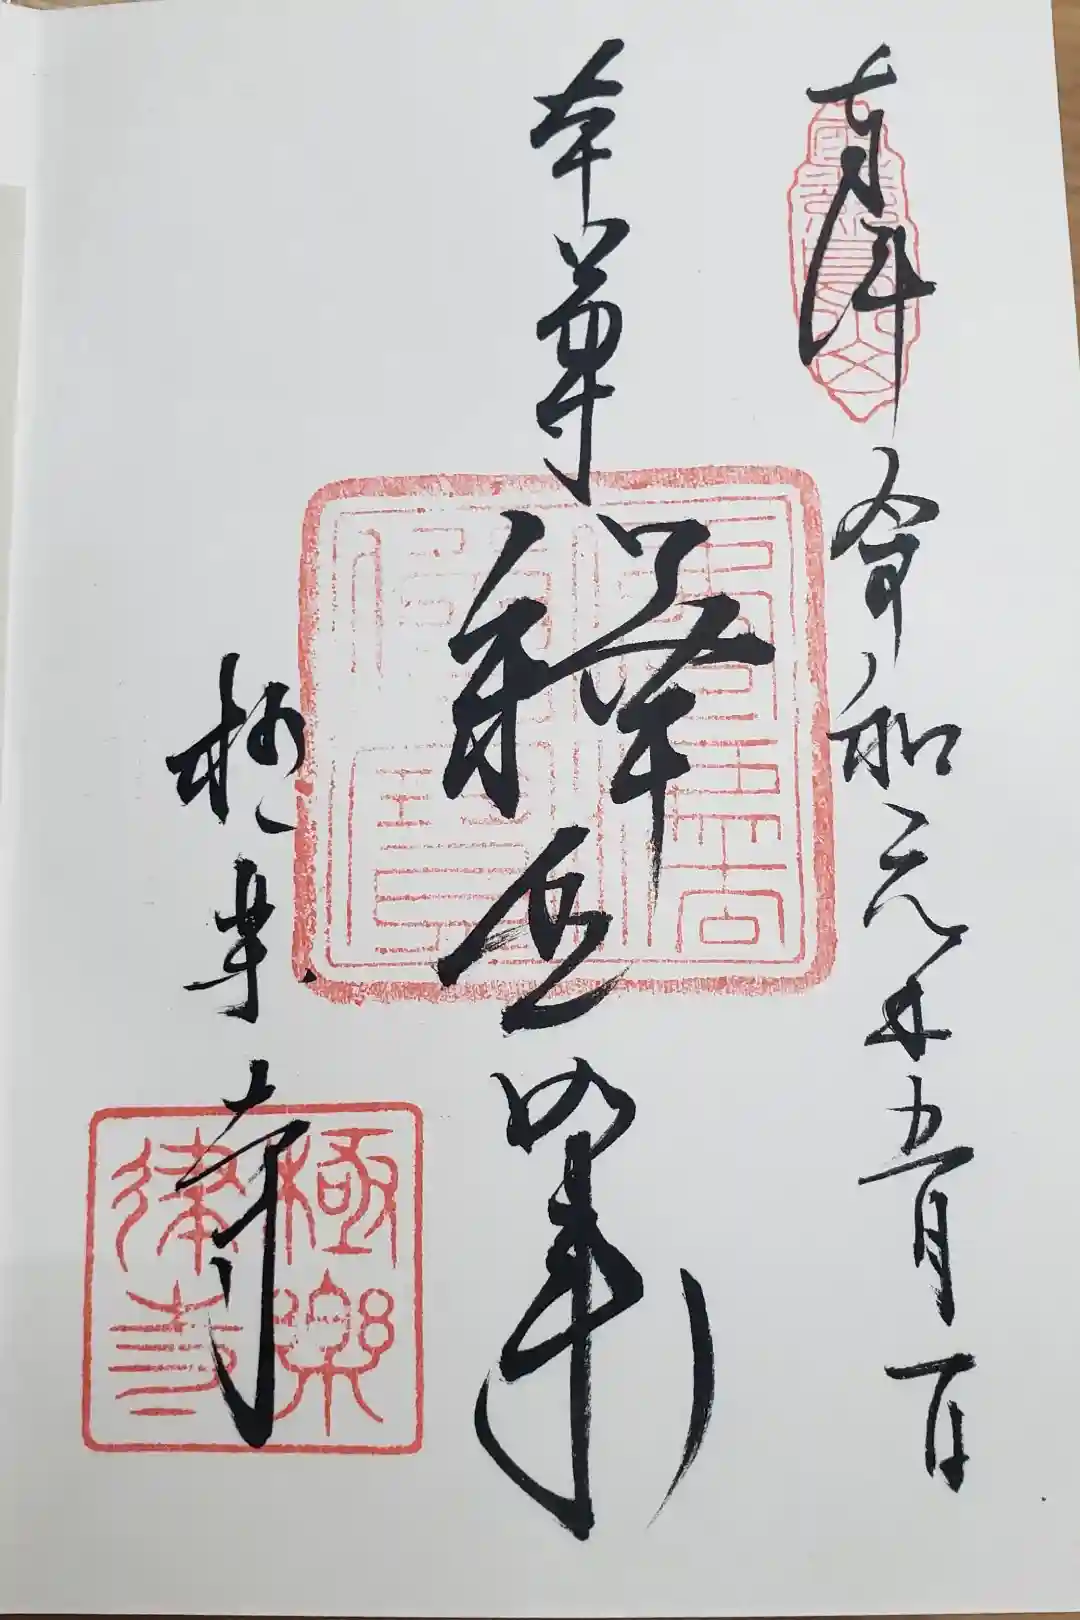 奉拝 令和元年五月一日
本尊 釋迦如来
極楽寺
極樂律寺